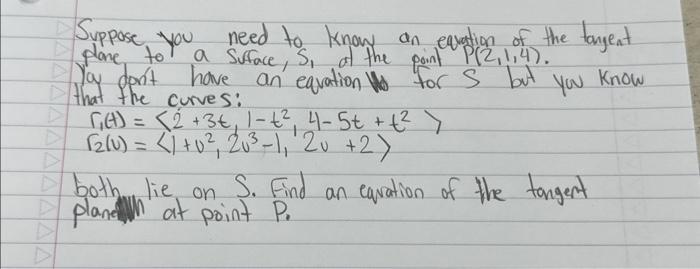 Suppose you need to know an equation of the tangent
plane to a surface, S, at the point P(2,1,4).
You don't have an equation for S but you know
that the curves:
r₁(t) = <2+3t, 1-t², 4-5t+t²>
r₂(u) = <1+u², 2u³-1, 2u+2>
both lie on S. Find an equation of the tangent
plane at point P.